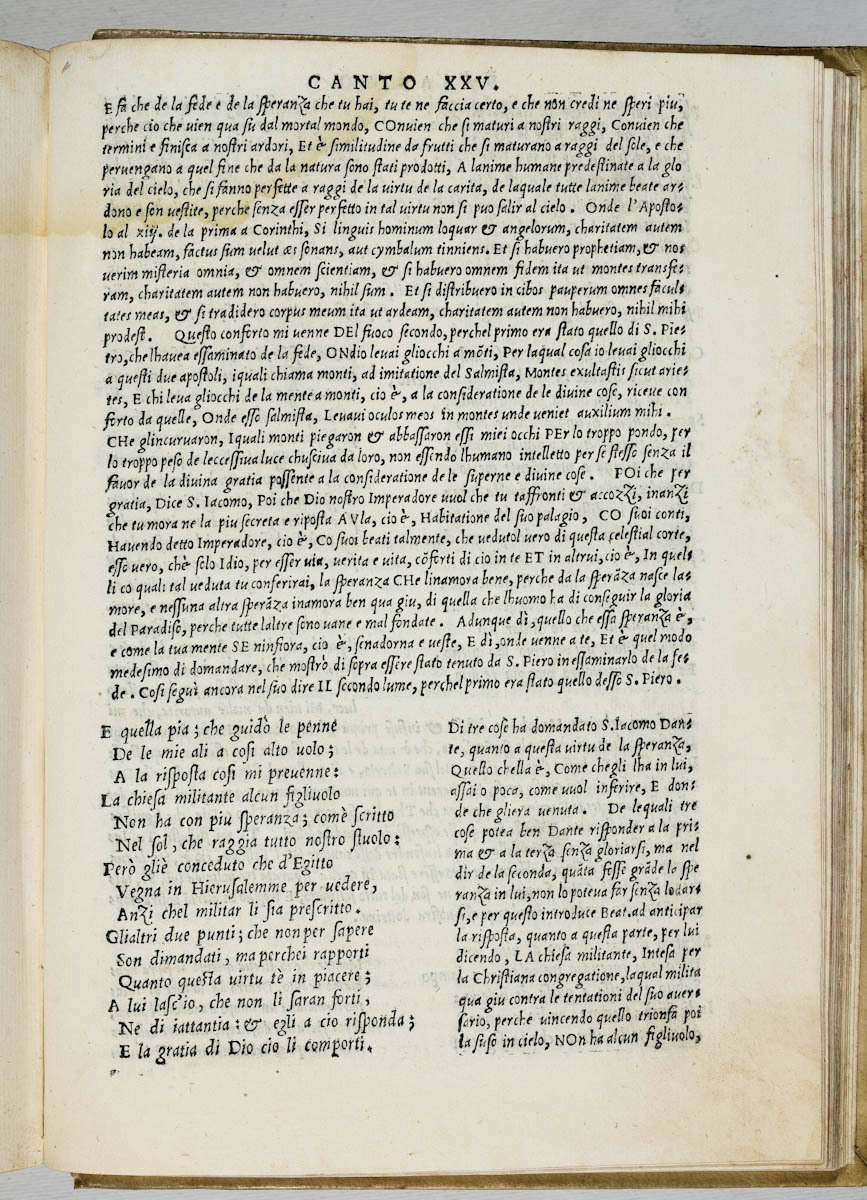 CANTO XXV.
E fa che de la fede e de la speranza che tu hai, tu te ne faccia certo, e che non credi ne speri piu,
perche cio che uien qua su dal mortal mondo, COnuien che si maturi a nostri raggi, Conuien che
termini e finisca a nostri ardori, Et è similitudine da frutti che si maturano a raggi del sole, e che
peruengano a quel fine che da la natura sono stati prodotti, A lanime humane predestinate a la glo
ria del cielo, che si fanno perfette a raggi de la uirtu de la carita, de laquale tutte lanime beate ar-
dono e son uestite, perche senza esser perfetto in tal uirtu non si puo salir al cielo. Onde l'Aposto-
lo al xiij. de la prima a Corinthi, Si linguis hominum loquar & angelorum, charitatem autem
non habeam, factus sum uelut æs sonans, aut cymbalum tinniens. Et si habuero prophetiam, & no-
uerim misteria omnia, & omnem scientiam, & si habuero omnem fidem ita ut montes transfe-
ram, charitatem autem non habuero, nihil sum. Et si distribuero in cibos pauperum omnes facul-
tates meas, & si tradidero corpus meum ita ut ardeam, charitatem autem non habuero, nihil mihi
prodest. Questo conforto mi uenne DEl fuoco secondo, perchel primo era stato quello di S. Pie-
tro, che lhauea essaminato de la fede, ONdio leuai gliocchi a mõti, Per laqual cosa io leuai gliocchi
a questi due apostoli, iquali chiama monti, ad imitatione del Salmista, Montes exultastis sicut arie-
tes, E chi leua gliocchi de la mente a monti, cio è, a la consideratione de le diuine cose, riceue con
forto da quelle, Onde esso salmista, Leuaui oculos meos in montes unde ueniet auxilium mihi.
CHe glincuruaron, Iquali monti piegaron & abbassaron essi miei occhi PEr lo troppo pondo, per
lo troppo peso de leccessiua luce chusciua da loro, non essendo lhumano intelletto per se stesso senza il
fauor de la diuina gratia possente a la consideratione de le superne e diuine cose. POi che per
gratia, Dice S. Iacomo, Poi che Dio nostro Imperadore uuol che tu taffronti & accozzi, inanzi
che tu mora ne la piu secreta e riposta AVla, cio è, Habitatione del suo palagio, CO suoi conti,
Hauendo detto Imperadore, cio è, Co suoi beati talmente, che uedutol uero di questa celestial corte,
esso uero, chè solo Idio, per esser uia, uerita e uita, cõforti di cio in te ET in altrui, cio è, In quel-
li co quali tal ueduta tu conferirai, la speranza CHe linamora bene, perche da la sperãza nasce la-
more, e nessuna altra sperãza inamora ben qua giu, di quella che lhuomo ha di conseguir la gloria
del Paradiso, perche tutte laltre sono uane e mal fondate. Adunque dì, quello che essa speranza è,
e come la tua mente SE ninfiora, cio è, senadorna e ueste, E dì, onde uenne a te, Et è quel modo
medesimo di domandare, che mostrò di sopra essere stato tenuto da S. Piero in essaminarlo de la fe-
de. Cosi seguì ancora nel suo dire IL secondo lume, perchel primo era stato quello desso S. Piero.
E quella pia; che guidò le penne
De le mie ali a cosi alto uolo;
A la risposta cosi mi preuenne:
La chiesa militante alcun figliuolo
Non ha con piu speranza; comè scritto
Nel sol, che raggia tutto nostro stuolo:
Però gliè conceduto che d'Egitto
Vegna in Hierusalemme per uedere,
Anzi chel militar li sia prescritto.
Glialtri due punti; che non per sapere
Son dimandati, ma perchei rapporti
Quanto questa uirtu tè in piacere;
A lui lasc'io, che non li saran forti,
Ne di iattantia: & egli a cio risponda;
E la gratia di Dio cio li comporti.
Di tre cose ha domandato S. Iacomo Dan-
te, quanto a questa uirtu de la speranza,
Quello chella è, Come chegli lha in lui,
assai o poca, come uuol inferire, E don-
de che gliera uenuta. De lequali tre
cose potea ben Dante risponder a la pri-
ma & a la terza senza gloriarsi, ma nel
dir de la seconda, quãta fosse grãde lo spe
ranza in lui, non lo poteua far senza lodar-
si, e per questo introduce Beat. ad anticipar
la risposta, quanto a questa parte, per lui
dicendo, LA chiesa militante, Intesa per
la Christiana congregatione, laqual milita
qua giu contra le tentationi del suo auer-
sario, perche uincendo quello trionfa poi
la suso in cielo, NOn ha alcun figliuolo,